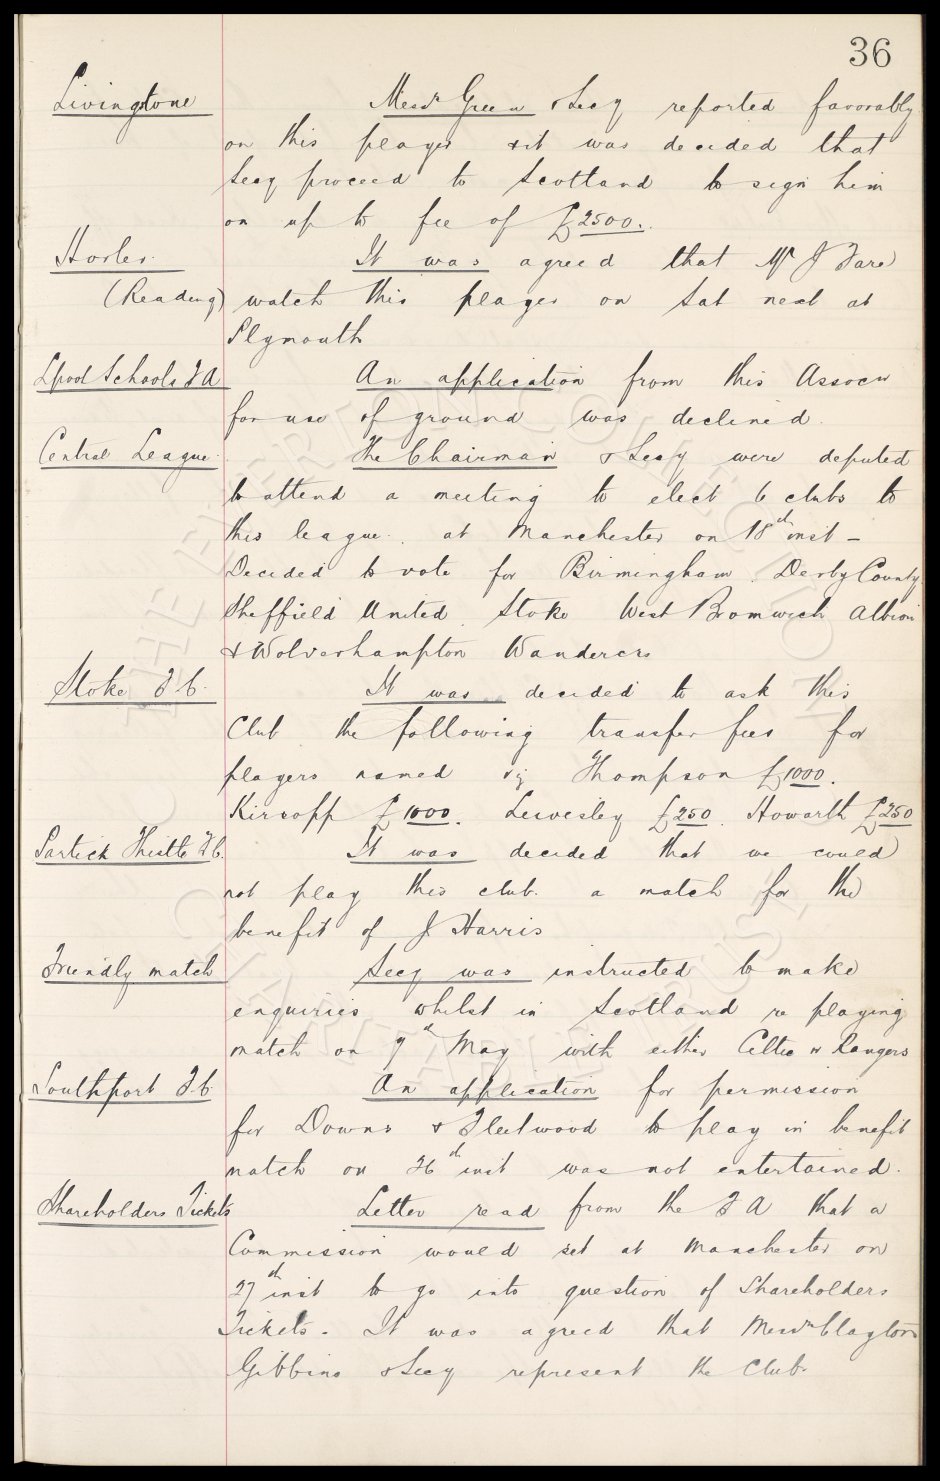 36
Livingstone
Messrs Green & Secy reported favorably
on this player & it was decided that
Secy proceed to Scotland to sign him
on up to fee of £2500.
Horler
It was agreed that Mr J Fare
(Reading) watch this player on Sat next at
Plymouth
Lpool Schools F A
An application from this Assocn
for use of ground was declined.
Central League
The Chairman & Secy were deputed
to attend a meeting to elect 6 clubs to
this league. at Manchester on 18th inst –
Decided to vote for Birmingham. Derby County
Sheffield United. Stoke West Bromwich Albion
& Wolverhampton Wanderers
Stoke F C.
It was decided to ask this
Club the following transfer fees for
players named viz Thompson £1000.
Kirsopp £1000. Lewesley £250. Howarth £250
Partick Thistle F C.
It was decided that we could
not play this club. a match for the
benefit of J Harris
Friendly match
Secy was instructed to make
enquiries whilst in Scotland re playing
match on 7th May with either Celtic or Rangers
Southport F C
An application for permission
for Downs & Fleetwood to play in benefit
match on 26th inst was not entertained.
Shareholders Tickets
Letter read from the F A that a
Commission would set at Manchester on
27th inst to go into question of Shareholders
Tickets. It was agreed that Messrs Clayton
Gibbins & Secy represent the Club.